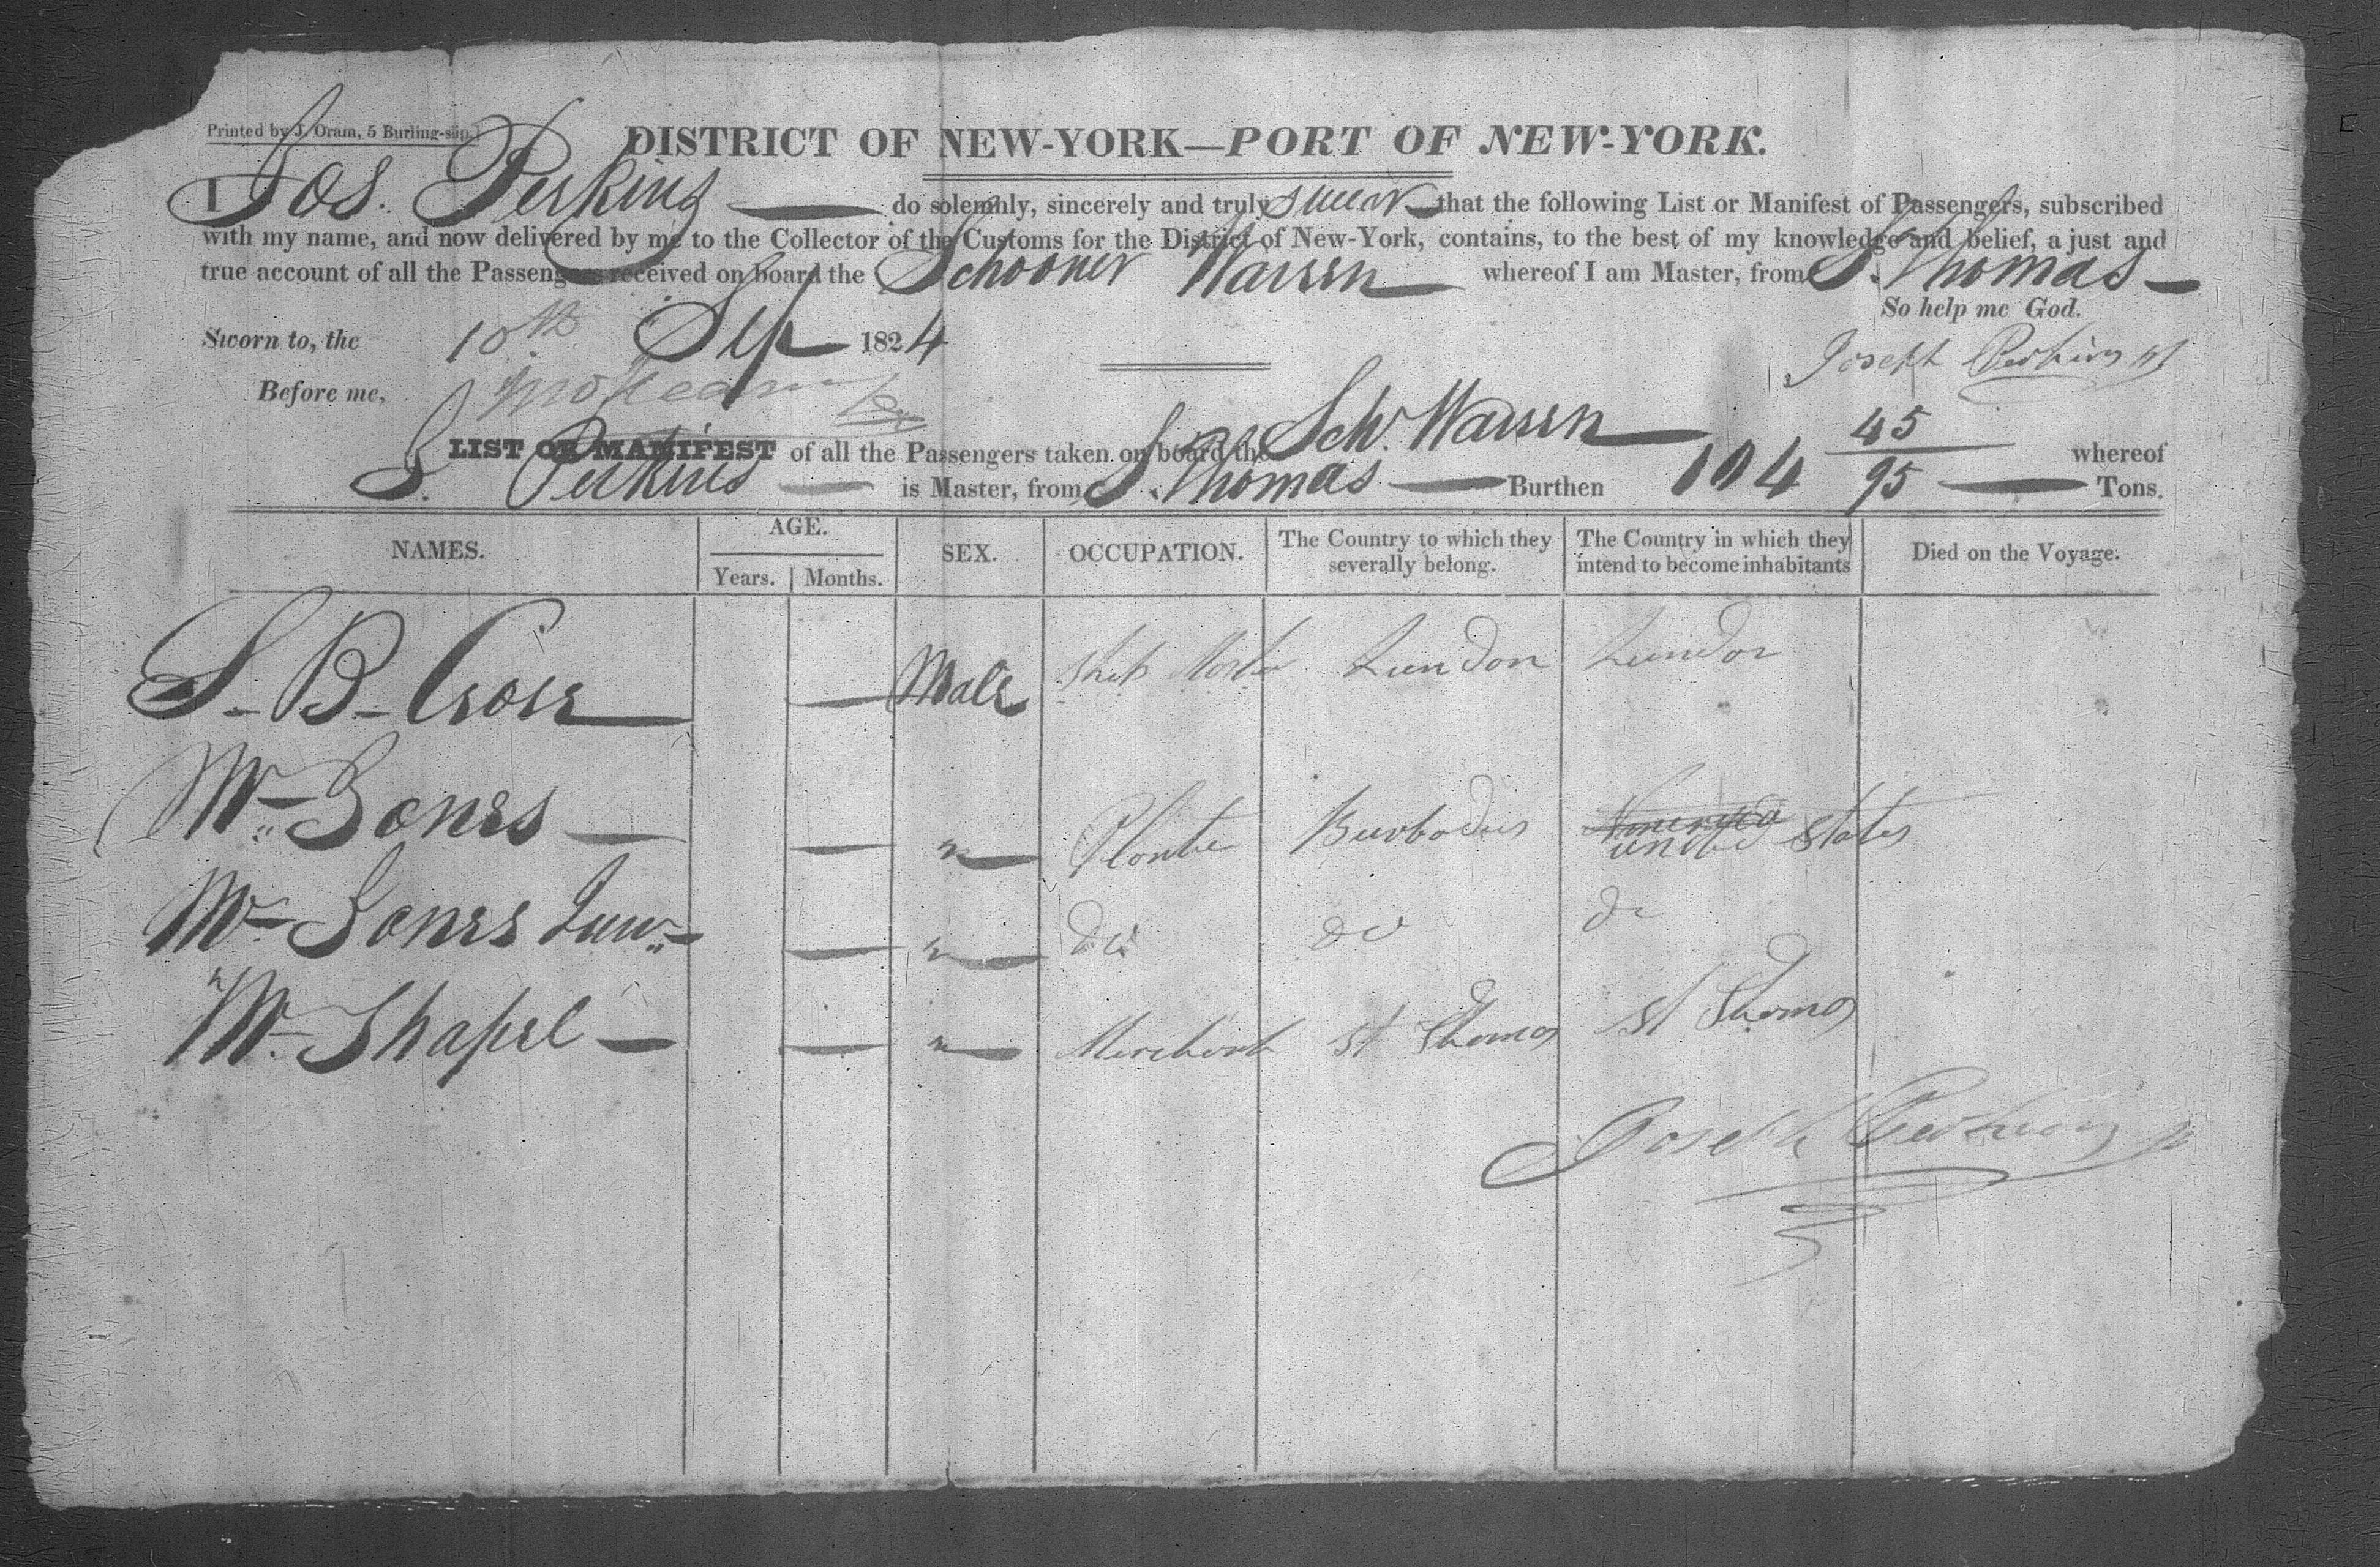 Printed by J. Oram, 5 Burling-slip.
DISTRICT OF NEW-YORK—PORT OF NEW-YORK.
I Jos. Perkins do solemnly, sincerely and truly swear that the following List or Manifest of Passengers, subscribed
with my name, and now delivered by me to the Collector of the Customs for the District of New-York, contains, to the best of my knowledge and belief, a just and
true account of all the Passengers received on board the Schooner Warren whereof I am Master, from S. Thomas
So help me God.
Sworn to, the 10th Sep 1824
Joseph Perkins
Before me,
LIST OR MANIFEST of all the Passengers taken on board the Sch. Warren whereof
J. Perkins is Master, from S. Thomas Burthen 104 45/95 Tons.
NAMES. AGE. Years. Months. SEX. OCCUPATION. The Country to which they severally belong. The Country in which they intend to become inhabitants Died on the Voyage.
S. B. Cross Male Ship London London
Mr Jones " Plante Barbadus united states
Mr Jones Junr " do do do
Mr Shapel " Merchant St Thomas St Thomas
Joseph Perkins